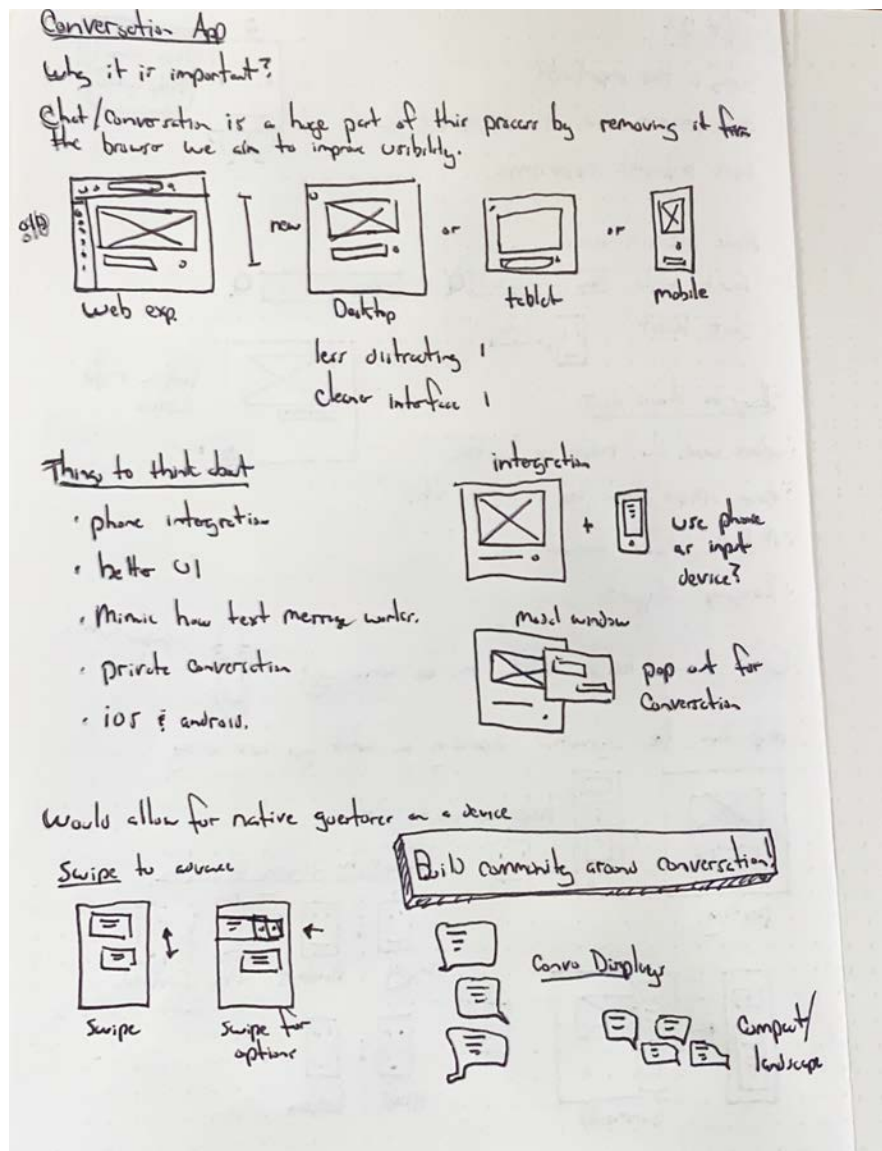 Conversation App
Why it is important?
Chat/Conversation is a huge part of this process by removing it from
the browser we aim to improve usibility.
old
new
or
or
web exp.
Desktop
tablet
mobile
less distracting !
cleaner interface !
Things to think about
· phone integration
· better UI
· Mimic how text message works.
· private conversation
· iOS & android.
integration
+
use phone
as input
device?
Modal window
pop out for
Conversation
Would allow for native guestures on a device
Swipe to advance
Build community around conversation!
Swipe
Swipe for
options
Convo Displays
Compact/
landscape